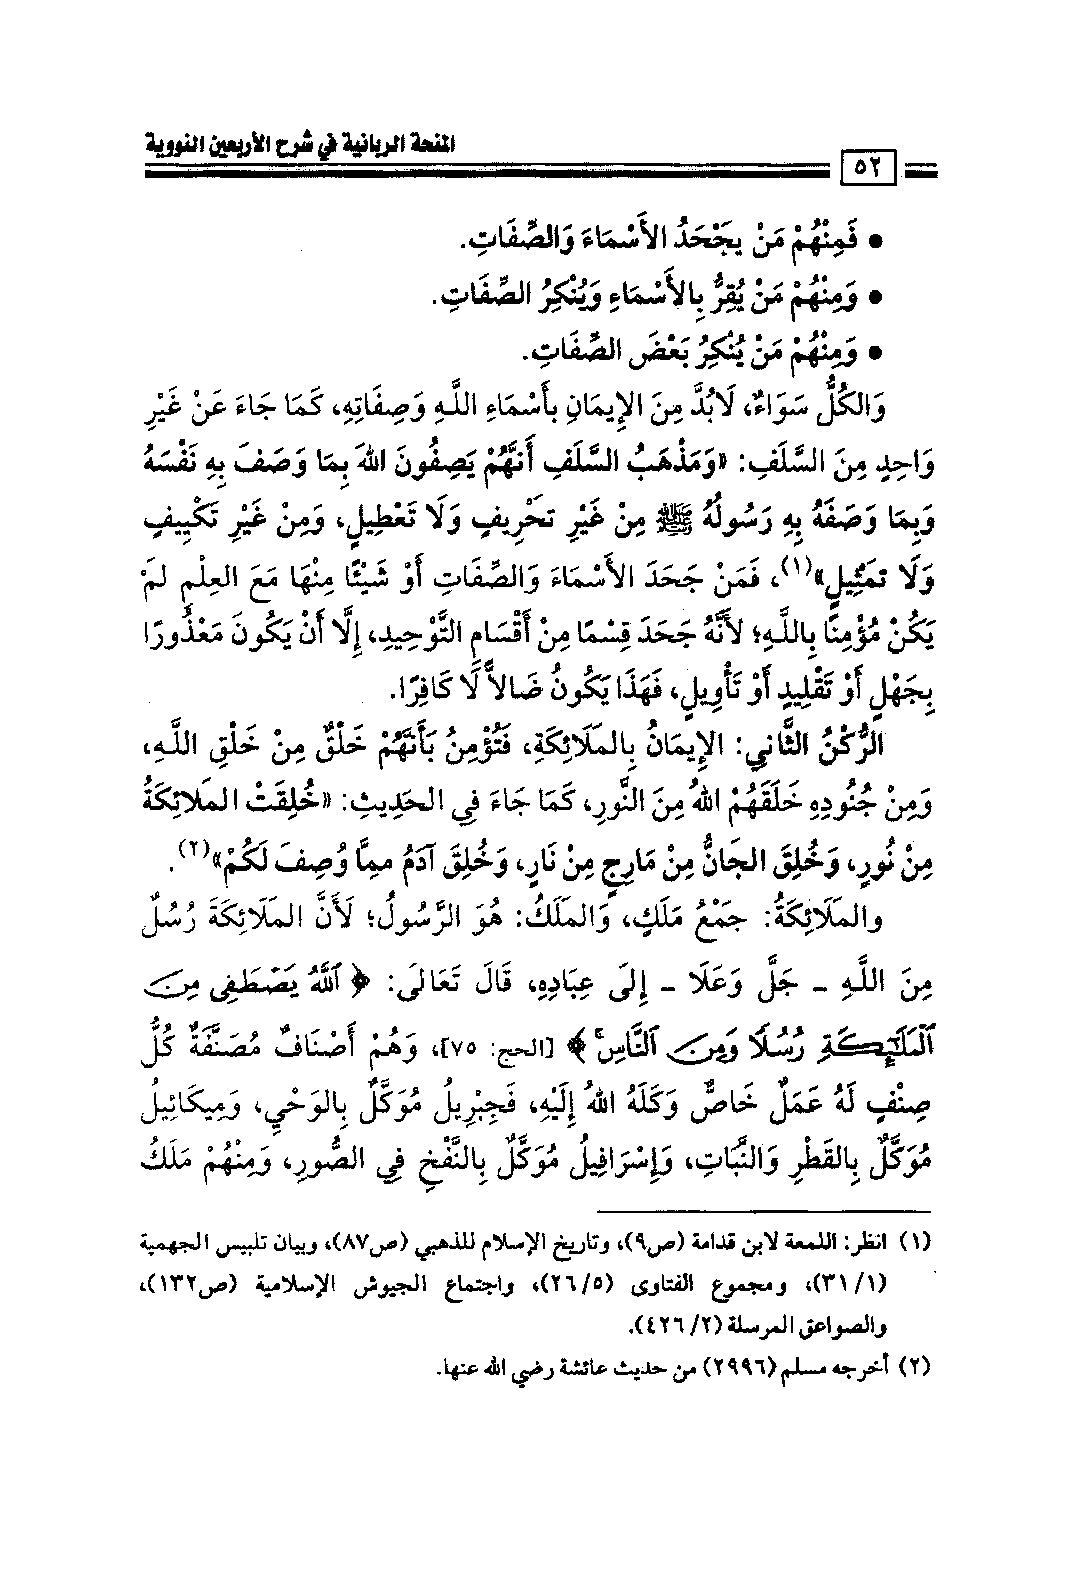 المنحة الربانية في شرح الأربعين النووية
٥٢
• فَمِنْهُمْ مَنْ يَجْحَدُ الأَسْمَاءَ وَالصِّفَاتِ.
• وَمِنْهُمْ مَنْ يُقِرُّ بِالأَسْمَاءِ وَيُنْكِرُ الصِّفَاتِ.
• وَمِنْهُمْ مَنْ يُنْكِرُ بَعْضَ الصِّفَاتِ.
وَالكُلُّ سَوَاءٌ، لَابُدَّ مِنَ الإِيمَانِ بِأَسْمَاءِ اللَّهِ وَصِفَاتِهِ، كَمَا جَاءَ عَنْ غَيْرِ
وَاحِدٍ مِنَ السَّلَفِ: «وَمَذْهَبُ السَّلَفِ أَنَّهُمْ يَصِفُونَ اللهَ بِمَا وَصَفَ بِهِ نَفْسَهُ
وَبِمَا وَصَفَهُ بِهِ رَسُولُهُ ﷺ مِنْ غَيْرِ تَحْرِيفٍ وَلَا تَعْطِيلٍ، وَمِنْ غَيْرِ تَكْيِيفٍ
وَلَا تَمْثِيلٍ»(١)، فَمَنْ جَحَدَ الأَسْمَاءَ وَالصِّفَاتِ أَوْ شَيْئًا مِنْهَا مَعَ العِلْمِ لَمْ
يَكُنْ مُؤْمِنًا بِاللَّهِ؛ لأَنَّهُ جَحَدَ قِسْمًا مِنْ أَقْسَامِ التَّوْحِيدِ، إِلَّا أَنْ يَكُونَ مَعْذُورًا
بِجَهْلٍ أَوْ تَقْلِيدٍ أَوْ تَأْوِيلٍ، فَهَذَا يَكُونُ ضَالاًّ لَا كَافِرًا.
الرُّكْنُ الثَّانِي: الإِيمَانُ بِالمَلَائِكَةِ، فَتُؤْمِنُ بِأَنَّهُمْ خَلْقٌ مِنْ خَلْقِ اللَّهِ،
وَمِنْ جُنُودِهِ خَلَقَهُمْ اللهُ مِنَ النُّورِ، كَمَا جَاءَ فِي الحَدِيثِ: «خُلِقَتْ المَلَائِكَةُ
مِنْ نُورٍ، وَخُلِقَ الجَانُّ مِنْ مَارِجٍ مِنْ نَارٍ، وَخُلِقَ آدَمُ مِمَّا وُصِفَ لَكُمْ»(٢).
والمَلَائِكَةُ: جَمْعُ مَلَكٍ، وَالمَلَكُ: هُوَ الرَّسُولُ؛ لَأَنَّ المَلَائِكَةَ رُسُلٌ
مِنَ اللَّهِ - جَلَّ وَعَلَا - إِلَى عِبَادِهِ، قَالَ تَعَالَى: ﴿ ٱللَّهُ يَصْطَفِى مِنَ
ٱلْمَلَٰٓئِكَةِ رُسُلًا وَمِنَ ٱلنَّاسِ ۚ ﴾ [الحج: ٧٥]، وَهُمْ أَصْنَافٌ مُصَنَّفَةٌ كُلُّ
صِنْفٍ لَهُ عَمَلٌ خَاصٌّ وَكَلَهُ اللهُ إِلَيْهِ، فَجِبْرِيلُ مُوَكَّلٌ بِالوَحْيِ، وَمِيكَائِيلُ
مُوَكَّلٌ بِالقَطْرِ وَالنَّبَاتِ، وَإِسْرَافِيلُ مُوَكَّلٌ بِالنَّفْخِ فِي الصُّورِ، وَمِنْهُمْ مَلَكُ
(١) انظر: اللمعة لابن قدامة (ص٩)، وتاريخ الإسلام للذهبي (ص٨٧)، وبيان تلبيس الجهمية
(٣١/١)، ومجموع الفتاوى (٢٦/٥)، واجتماع الجيوش الإسلامية (ص١٣٢)،
والصواعق المرسلة (٤٢٦/٢).
(٢) أخرجه مسلم (٢٩٩٦) من حديث عائشة رضي الله عنها.